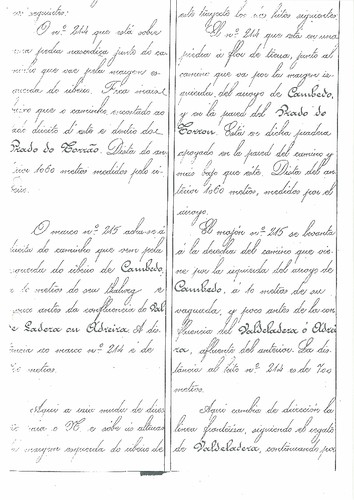 O nº 214 que está sobre
uma pedra nascediça junto do ca-
minho que vae pela margem es-
querda do ribeiro. Fica mais
que o caminho, encostado ao
direito d'este e dentro do
Prado do Torrão. Dista do an-
terior 1060 metros medidos pelo ri-
beiro.
O marco nº 215 acha-se á
direita do caminho que vem pela
esquerda do ribeiro de Cambedo,
a 10 metros do seu thalweg e
pouco antes da confluencia do Val
de Ladera ou Adreira. A dis-
tancia ao marco nº 214 é de
metros.
Aqui a raia muda de direc
para o N. e sobe
margem esquerda do ribeiro de
este trayecto los dos hitos siguientes:
El nº 214 que está en una
piedra á flor de tierra, junto al
camino que va por la margen iz-
quierda del arroyo de Cambedo,
y en la pared del Prado do
Torron. Está en dicha pradera
apoyado en la pared del camino y
más bajo que éste. Dista del an-
terior 1060 metros, medidos por el
arroyo.
El mojón nº 215 se levanta
á la derecha del camino que vie-
ne por la izquierda del arroyo de
Cambedo, á 10 metros de su
vaguada, y poco antes de la con-
fluencia del Valdeladera ó Adrei
ra, afluente del anterior. La dis-
tancia al hito nº 214 es de 700
metros.
Aquí cambia de dirección la
línea fronteriza, siguiendo el regato
de Valdeladera, continuando por